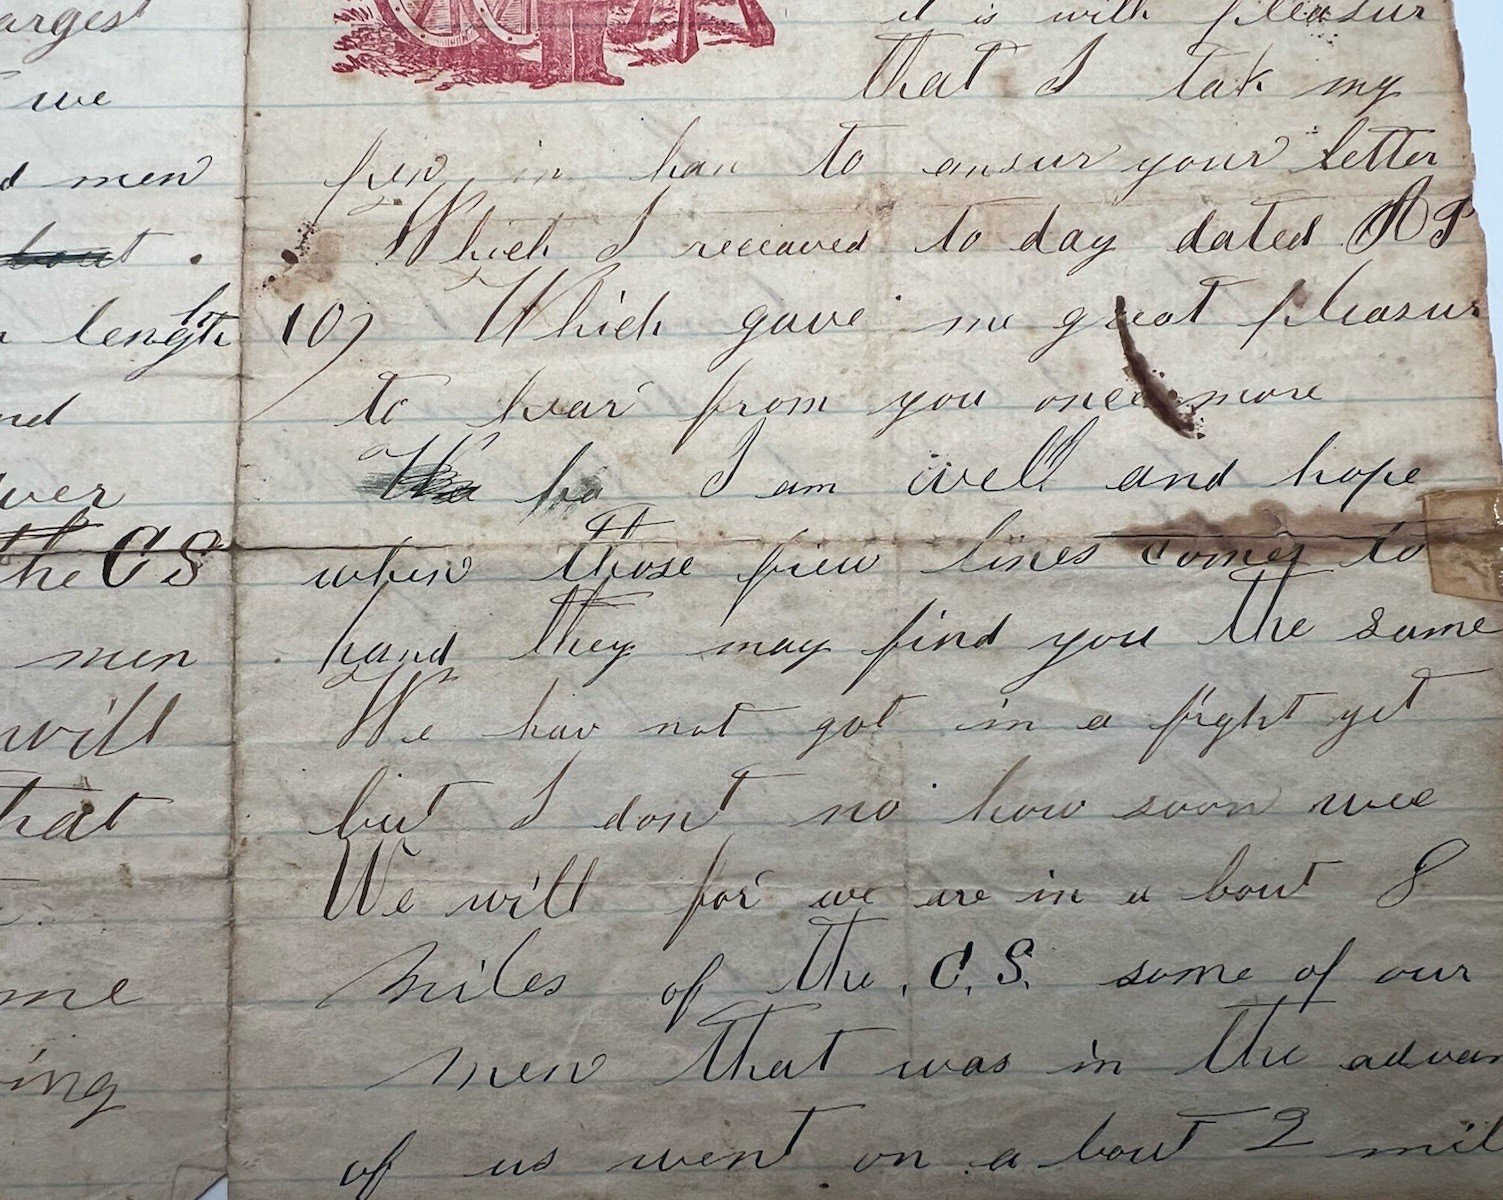 arges
we
men
bout .
length
nd
ver
the C S
men
will
that
me
ing
it is with pleasur
that I tak my
pen in han to ansur your letter
Which I receaved to day dated AP
10) Which gave me great pleasur
to hear from you once more
The ho I am well and hope
when those few lines comes to
hand they may find you the same
We hav not got in a fight yet
but I dont no how soon wee
We will for we are in a bout 8
miles of the C. S. some of our
men that was in the advan
of us went on a bout 2 mil